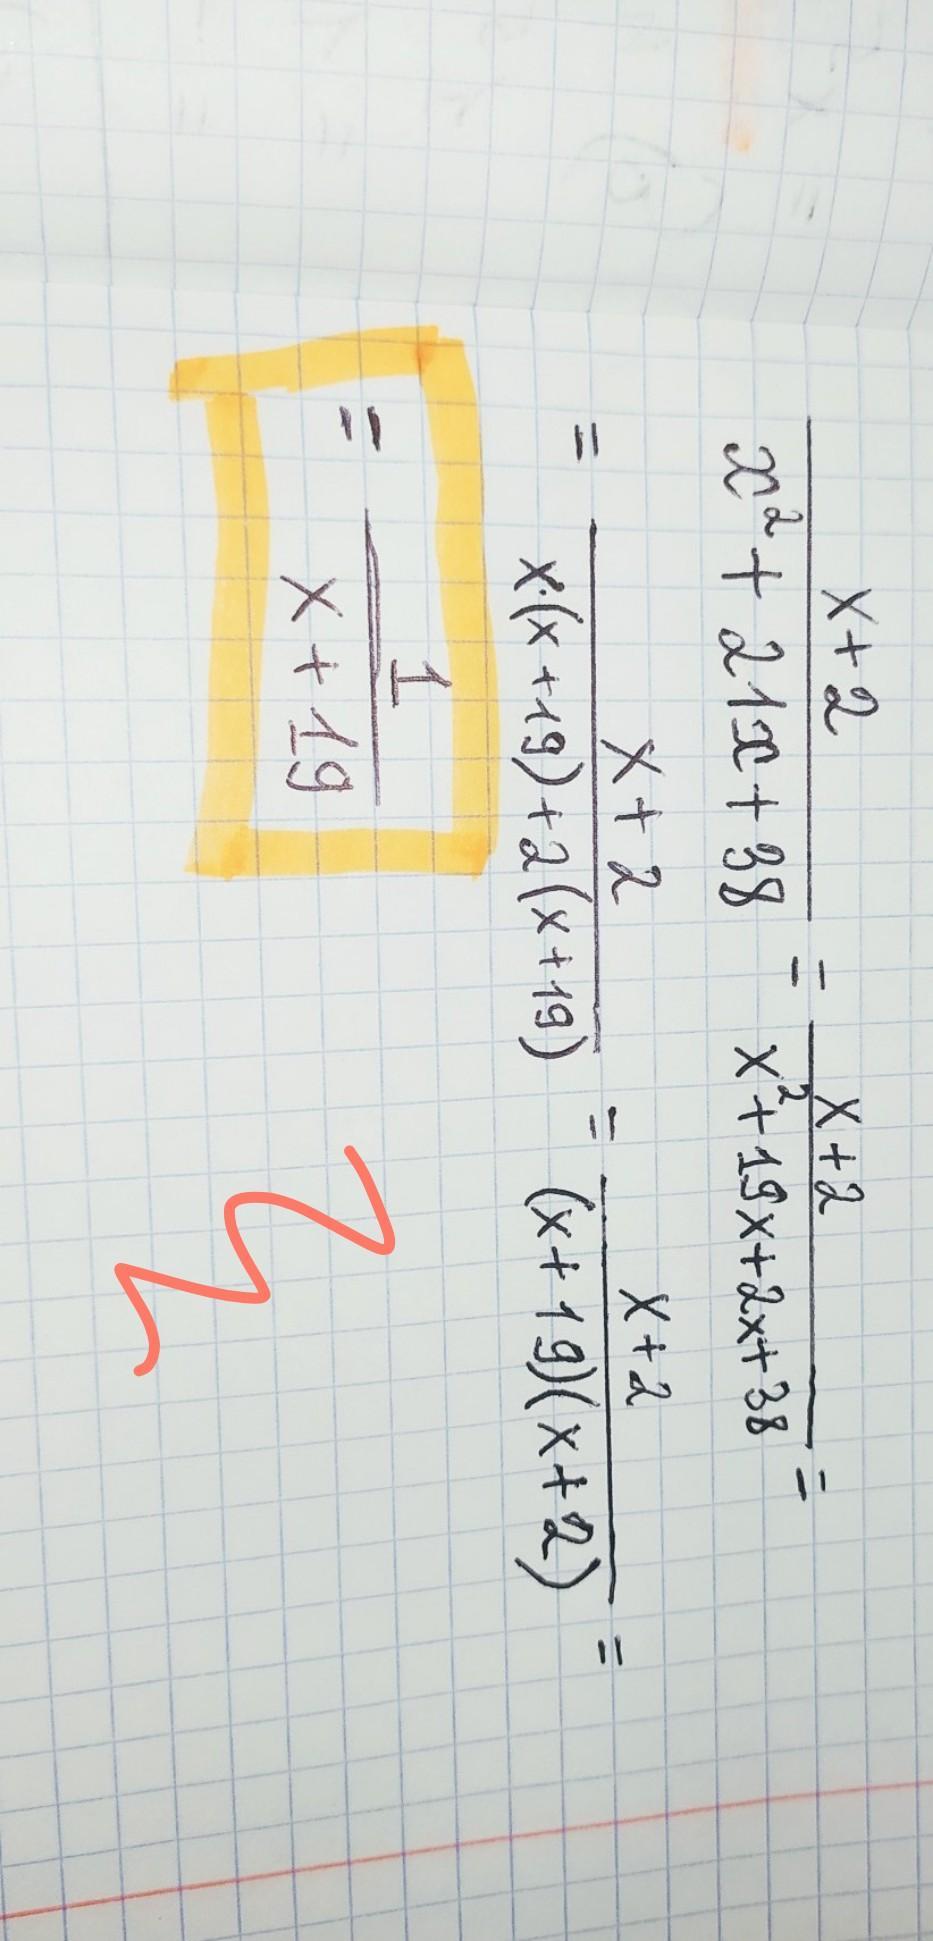 x+2 / x² + 21x + 38 = x+2 / x² + 19x + 2x + 38 =
= x + 2 / x·(x + 19) + 2(x + 19) = x + 2 / (x + 19)(x + 2) =
= 1 / x + 19